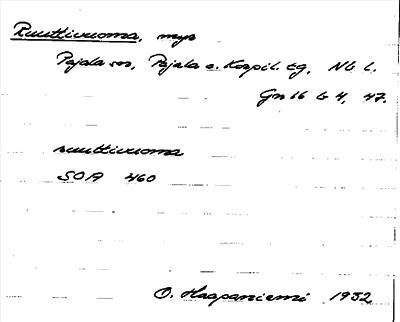 Ruuttivuoma, myr
Pajala sn, Pajala o. Korpil. tg, Nb l.
Gr 16 b 4, 47.
ruuttivuoma
SOA 460
O. Haapaniemi 1932